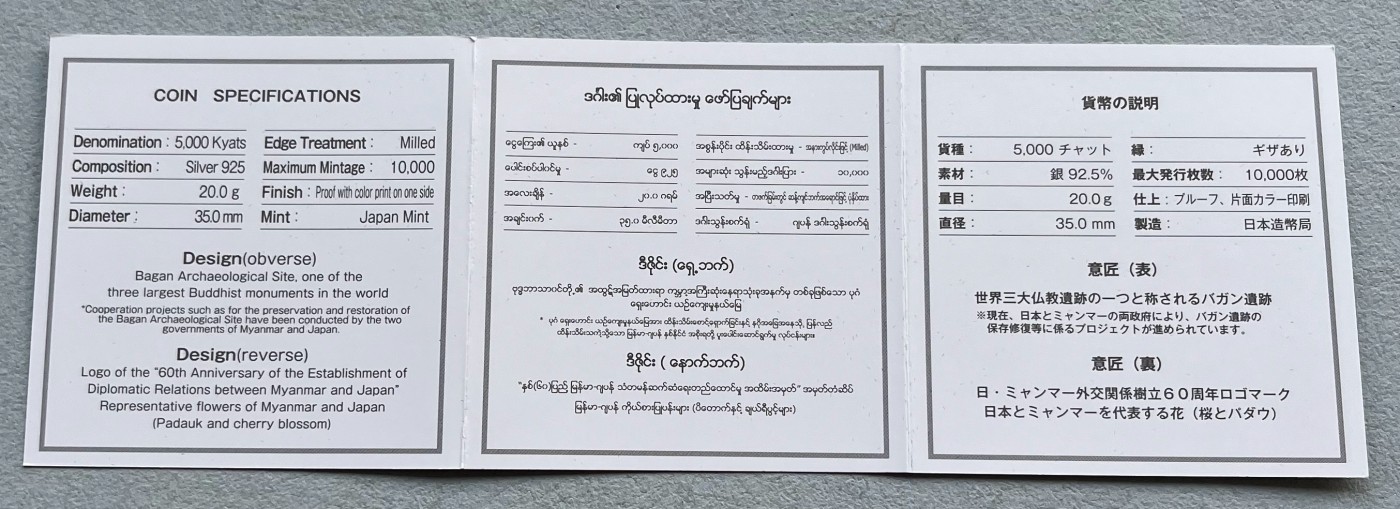 COIN SPECIFICATIONS
Denomination : 5,000 Kyats
Edge Treatment : Milled
Composition : Silver 925
Maximum Mintage : 10,000
Weight : 20.0 g
Finish : Proof with color print on one side
Diameter : 35.0 mm
Mint : Japan Mint
Design(obverse)
Bagan Archaeological Site, one of the
three largest Buddhist monuments in the world
*Cooperation projects such as for the preservation and restoration of
the Bagan Archaeological Site have been conducted by the two
governments of Myanmar and Japan.
Design(reverse)
Logo of the "60th Anniversary of the Establishment of
Diplomatic Relations between Myanmar and Japan"
Representative flowers of Myanmar and Japan
(Padauk and cherry blossom)
ဒင်္ဂါး၏ ပြုလုပ်ထားမှု ဖော်ပြချက်များ
ငွေကြေး၏ ယူနစ် - ကျပ် ၅,၀၀၀
အစွန်းပိုင်း ထိန်းသိမ်းထားမှု - အနားကွပ်လိုင်းဖြင့် (Milled)
ပေါင်းစပ်ပါဝင်မှု - ငွေ ၉၂၅
အများဆုံး သွန်းမည့်ဒင်္ဂါးပြား - ၁၀,၀၀၀
အလေးချိန် - ၂၀.၀ ဂရမ်
အပြီးသတ်မှု -
အချင်းဝက် - ၃၅.၀ မီလီမီတာ
ဒင်္ဂါးသွန်းစက်ရုံ - ဂျပန် ဒင်္ဂါးသွန်းစက်ရုံ
ဒီဇိုင်း (ရှေ့ဘက်)
ဗုဒ္ဓဘာသာဝင်တို့၏ အထွဋ်အမြတ်ထားရာ ကမ္ဘာ့အကြီးဆုံးနေရာသုံးခုအနက်မှ တစ်ခုဖြစ်သော ပုဂံ
ရှေးဟောင်း ယဉ်ကျေးမှုနယ်မြေ
* ပုဂံ ရှေးဟောင်း ယဉ်ကျေးမှုနယ်မြေအား ထိန်းသိမ်းစောင့်ရှောက်ခြင်းနှင့် နဂိုအခြေအနေသို့ ပြန်လည်
ထိန်းသိမ်းသကဲ့သို့သော မြန်မာ-ဂျပန် နှစ်နိုင်ငံ အစိုးရတို့ ပူးပေါင်းဆောင်ရွက်မှု လုပ်ငန်းများ။
ဒီဇိုင်း ( နောက်ဘက်)
"နှစ်(၆၀)ပြည့် မြန်မာ-ဂျပန် သံတမန်ဆက်ဆံရေးတည်ထောင်မှု အထိမ်းအမှတ်" အမှတ်တံဆိပ်
မြန်မာ-ဂျပန် ကိုယ်စားပြုပန်းများ (ပိတောက်နှင့် ချယ်ရီပွင့်များ)
貨幣の説明
貨種： 5,000 チャット
縁： ギザあり
素材： 銀 92.5%
最大発行枚数： 10,000枚
量目： 20.0 g
仕上：プルーフ、片面カラー印刷
直径： 35.0 mm
製造： 日本造幣局
意匠（表）
世界三大仏教遺跡の一つと称されるバガン遺跡
※現在、日本とミャンマーの両政府により、バガン遺跡の
保存修復等に係るプロジェクトが進められています。
意匠（裏）
日・ミャンマー外交関係樹立６０周年ロゴマーク
日本とミャンマーを代表する花（桜とパダウ）